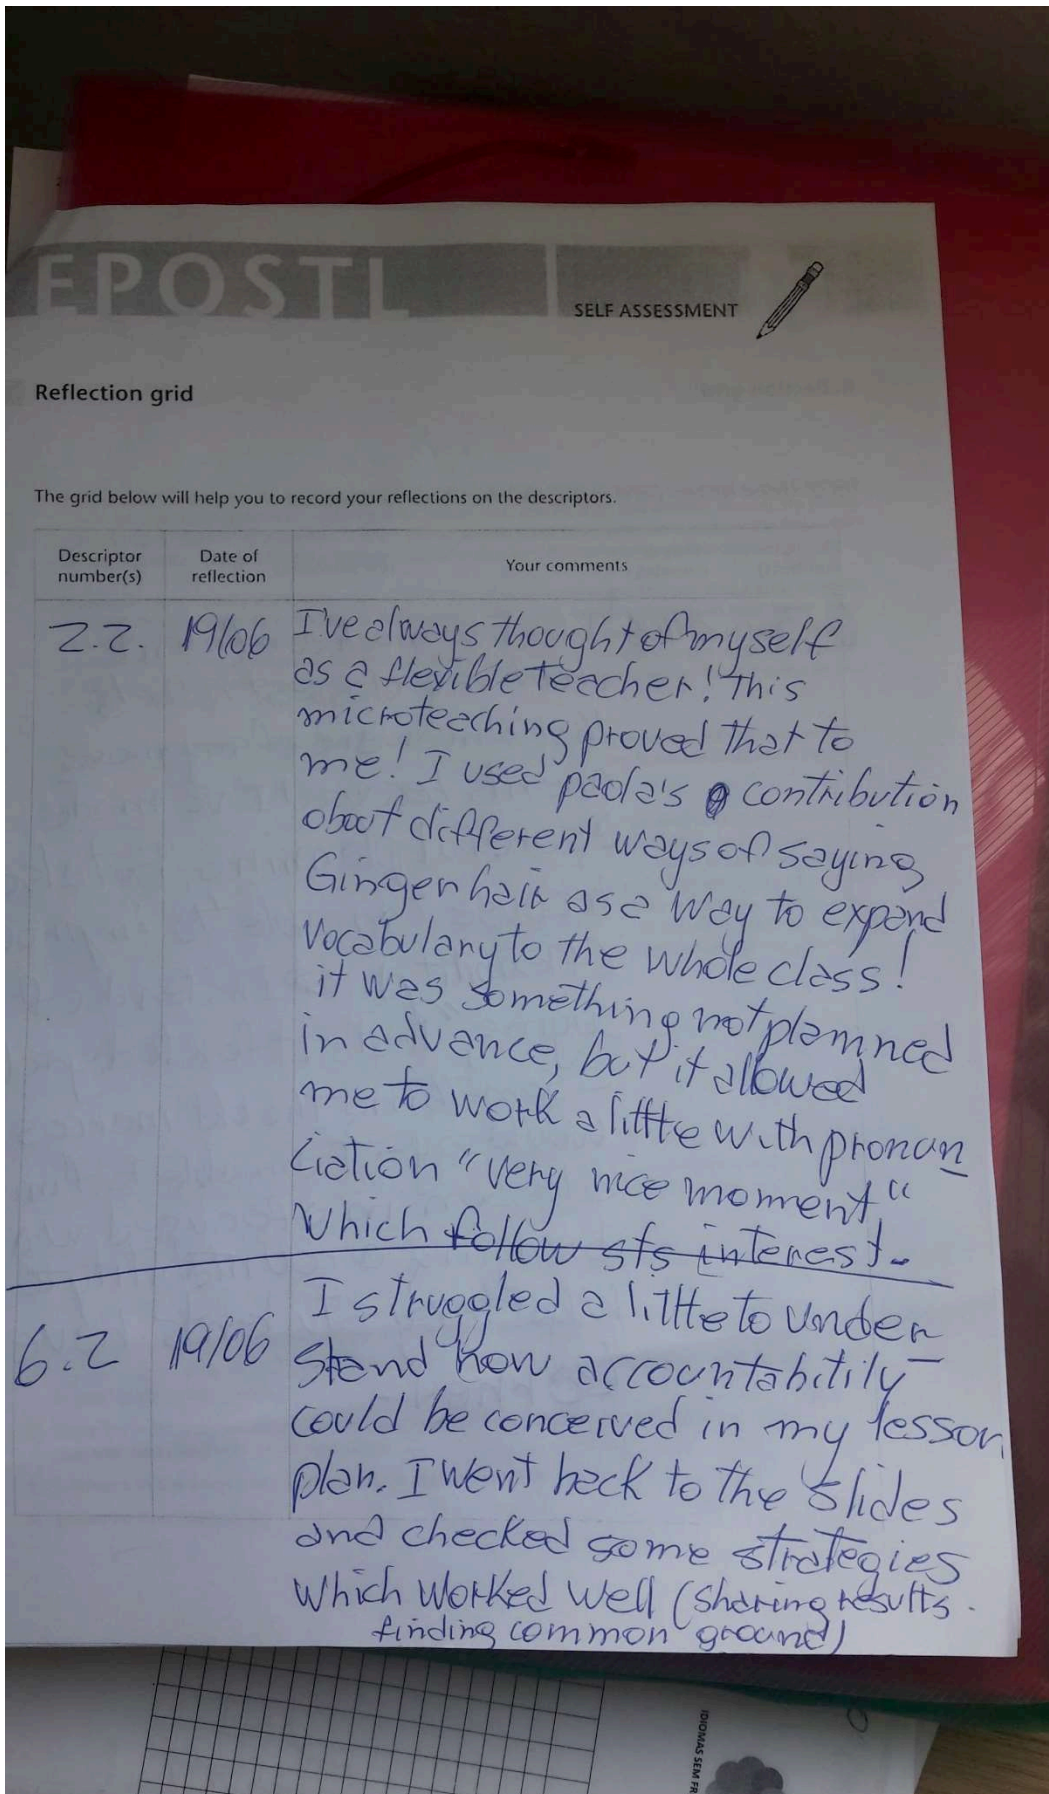 EPOSTL
SELF ASSESSMENT
Reflection grid
The grid below will help you to record your reflections on the descriptors.
Descriptor number(s)
Date of reflection
Your comments
2.2. 19/06 I've always thought of myself
as a flexible teacher! This
microteaching proved that to
me! I used paola's contribution
about different ways of saying
Ginger hair as a way to expand
vocabulary to the whole class!
it was something not plamned
in advance, but it allowed
me to work a little with pronun
ciation "very nice moment"
which follow sts interest.
6.2 19/06 I struggled a little to under-
stand how accountability
could be conceived in my lesson
plan. I went back to the slides
and checked some strategies
which worked well (sharing results.
finding common ground)
IDIOMAS SEM FR